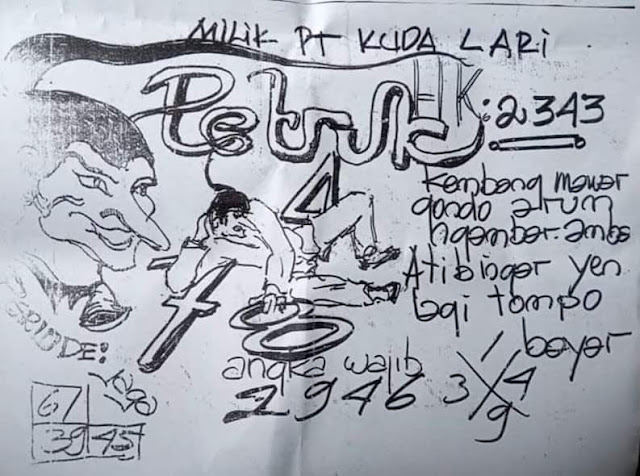 MILIK PT KUDA LARI
Petruk
HK: 2343
Kembang mawar
gondo arum
ngambar-ambar
Ati binger yen
lagi tompo
bayar
4
7 8 0
angka wajib
2946
3 / 4
9
67
39 45